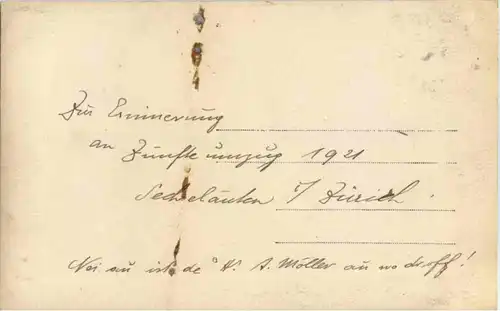 Zur Erinnerung
an Zunftumzug 1921
Sechseläuten i/ Zürich
Nei au ist de H. A. Möller au wo druff!